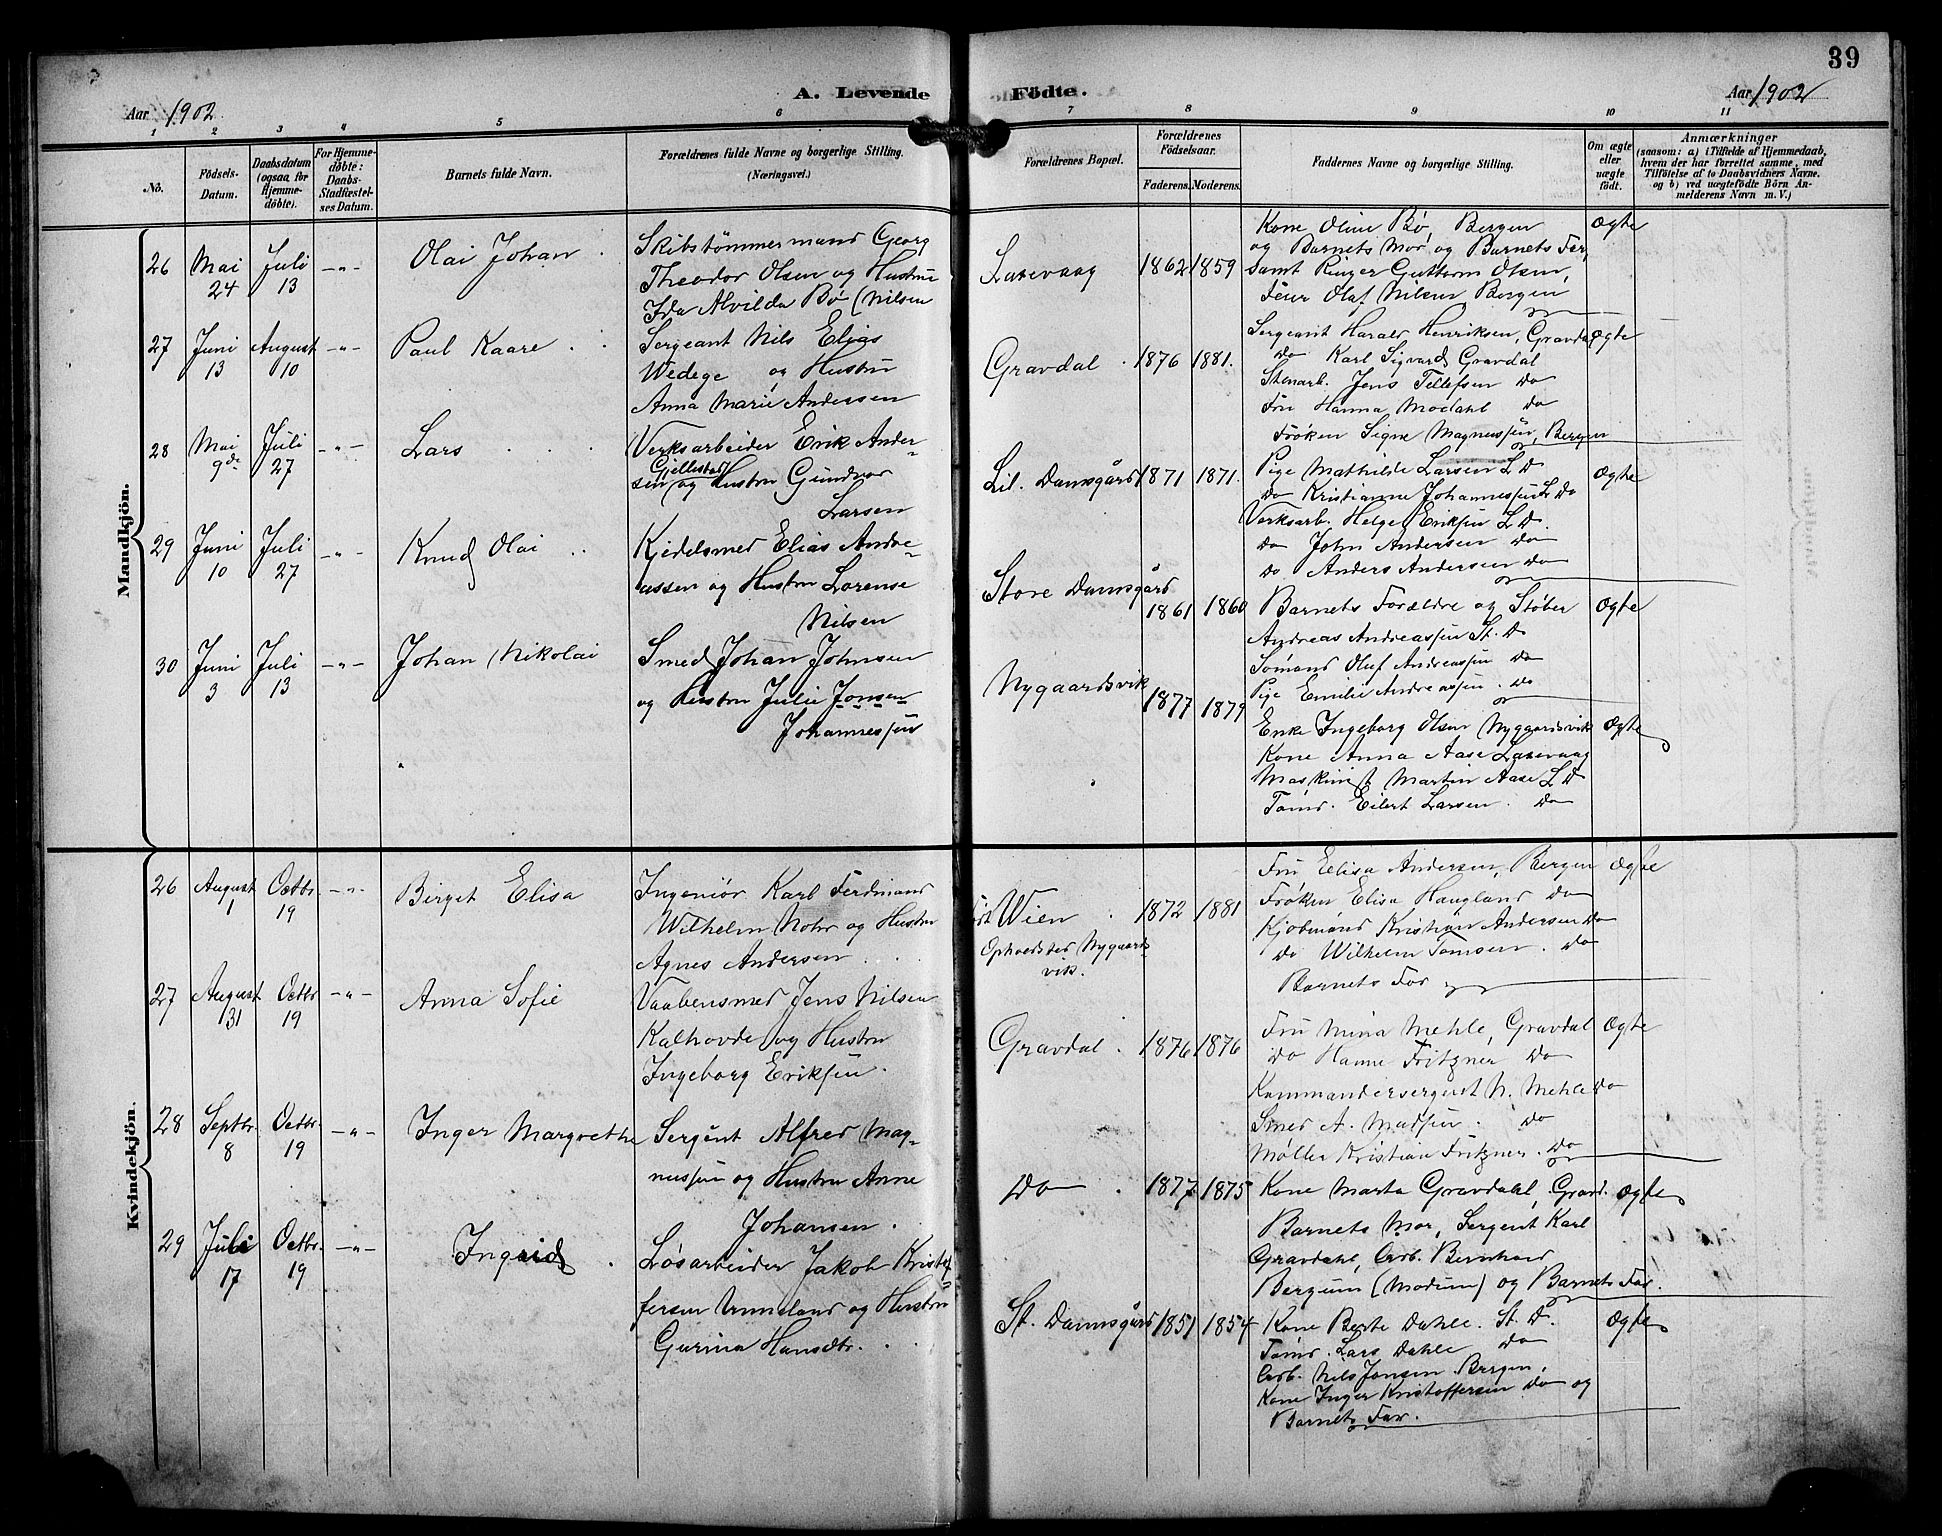 39
A. Levende Födte.
Aar 1902
Aar 1902
1 2 3 4 5 6 7 8 9 10 11
No.
Födsels-
Datum.
Daabsdatum
(ogsaa for
Hjemme-
döbte).
For Hjemme-
döbte:
Daabs-
Stadfæstel-
ses Datum.
Barnets fulde Navn.
Forældrenes fulde Navne og borgerlige Stilling.
(Næringsvei.)
Forældrenes Bopæl.
Forældrenes
Födselsaar.
Faderens. Moderens.
Faddernes Navne og borgerlige Stilling.
Om ægte
eller
uægte
födt.
Anmærkninger
(saasom: a) i Tilfælde af Hjemmedaab,
hvem der har forrettet samme, med
Tilföielse af to Daabsvidners Navne.
og b) ved uægtefödte Börn An-
melderens Navn m. V.)
Mandkjön.
26 Mai 24 Juli 13 -"- Olai Johan
Skibstømmermand Georg
Theodor Olsen og Hustru
Ida Alvilda Bø (Nilsen
Laxevaag 1862 1859
Kone Oline Bø, Bergen
og Barnets Mor og Barnets Far,
samt Ringer Guttorm Olsen,
Feier Olaf Nilsen Bergen
Ægte
27 Juni 13 August 10 -"- Paul Kaare
Sergeant Nils Elias
Wedege og Hustru
Anna Marie Andersen
Gravdal 1876 1881.
Sergeant Harald Henriksen, Gravdal
do Karl Sigvard Gravdal
Stenarb. Jens Tellefsen do
Fru Hanna Modahl do
Frøken Signe Magnussen, Bergen
Ægte
28 Mai 9de Juli 27 -"- Lars
Verksarbeider Erik Ander-
sen (Gjellestad) og Hustru Gundvor
Larsen
Lil. Damsgård 1871 1871.
Pige Mathilde Larsen L D
do Kristianne Johannessen L D
Verksarb. Helge Eriksen L D.
do John Andersen do
do Anders Andersen do
Ægte
29 Juni 10 Juli 27 -"- Knud Olai
Kjedelsmed Elias Andre-
assen og Hustru Lorense
Nilsen
Store Damsgård 1861 1860
Barnets Forældre og Støber
Andreas Andreassen St. D
Sømand Oluf Andreassen do
Pige Emilie Andreassen. do
Ægte
30 Juni 3 Juli 13 -"- Johan Nikolai
Smed Johan Johnsen
og Hustru Julie Jonsen
Johannessen
Nygaardsvik 1877 1879
Enke Ingeborg Olsen Nygaardsvik
Kone Anna Aase Laxevaag
Maskinist Martin Aase L D
Tømd. Eilert Larsen. do
Ægte
Kvindekjön.
26 August 1 Octbr. 19 -"- Birget Elisa
Ingeniør Karl Ferdinand
Wilhelm Mohr og Hustru
Agnes Andersen
Wien
Opholdsted Nygaards
vik.
1872 1881
Fru Elisa Andersen, Bergen
Frøken Elisa Haugland do
Kjøbmand Kristian Andersen do
do Wilhelm Tomsen. do
Barnets Far
Ægte
27 August 31 Octbr 19 -"- Anna Sofie
Vaabensmed Jens Nilsen
Kalhovde og Hustru
Ingeborg Eriksen.
Gravdal. 1876 1876
Fru Mina Mehle, Gravdal
do Hanne Fritzner do
Kommandersergent N. Mehle do
Smed A. Madsen. do
Møller Kristian Fritzner. do
Ægte
28 Septbr. 8 Octbr. 19 -"- Inger Margrethe
Sergent Alfred Mag-
nussen og Hustru Anne
Johansen.
do 1877 1875
Kone Marta Gravdahl, Gravd.
Barnets Mor, Sergent Karl
Gravdahl, Arb. Bernhard
Bergum (Modum) og Barnets Far.
Ægte
29 Juli 17 Octbr. 19 -"- Ingrid
Løsarbeider Jakob Kristof-
fersen Unneland og Hustru
Gurina Hansdtr.
St. Damsgård 1851 1854
Kone Berte Dahle. St D.
Tømd. Lars Dahle do
Arb. Nils Jonsen Bergen.
Kone Inger Kristoffersen do og
Barnets Far.
Ægte